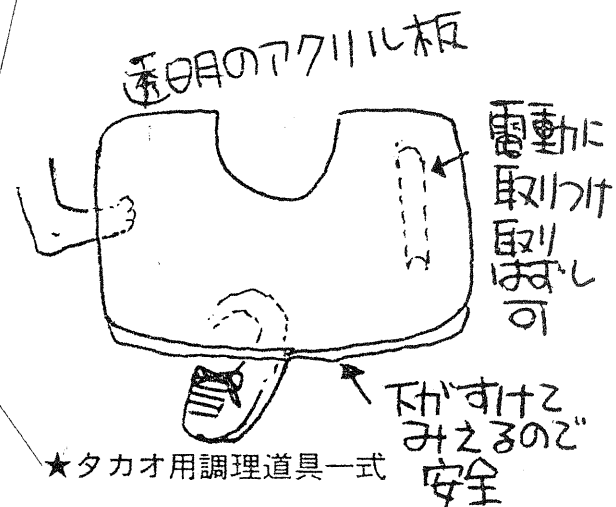 透明のアクリル板
電動に
取りつけ
取り
はずし
可
下がすけて
みえるので
安全
★タカオ用調理道具一式